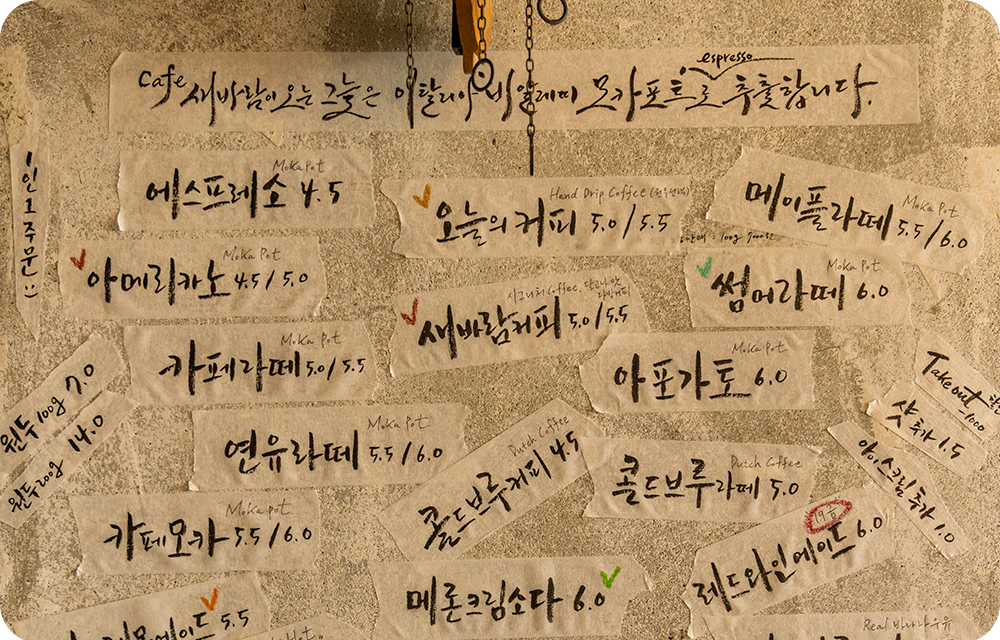 espresso
cafe 새바람이 오는 그늘은 이탈리아 비알레띠 모카포트로 추출합니다.
1인 1주문 :)
Moka Pot
에스프레소 4.5
Hand Drip Coffee
오늘의 커피 5.0/5.5
Moka Pot
메이플라떼 5.5/6.0
Moka Pot
아메리카노 4.5/5.0
Moka Pot
썸머라떼 6.0
시그니처 Coffee,
새바람커피 5.0/5.5
Moka Pot
카페라떼 5.0/5.5
Moka Pot
아포가토 6.0
Take out -1000
샷 추가 1.5
아이스크림 추가 1.0
원두 100g 7.0
원두 200g 14.0
Moka Pot
연유라떼 5.5/6.0
Dutch Coffee
콜드브루커피 4.5
Dutch Coffee
콜드브루라떼 5.0
Moka Pot
카페모카 5.5/6.0
19금
레드와인에이드 6.0
메론크림소다 6.0
에이드 5.5
Real 바나나우유